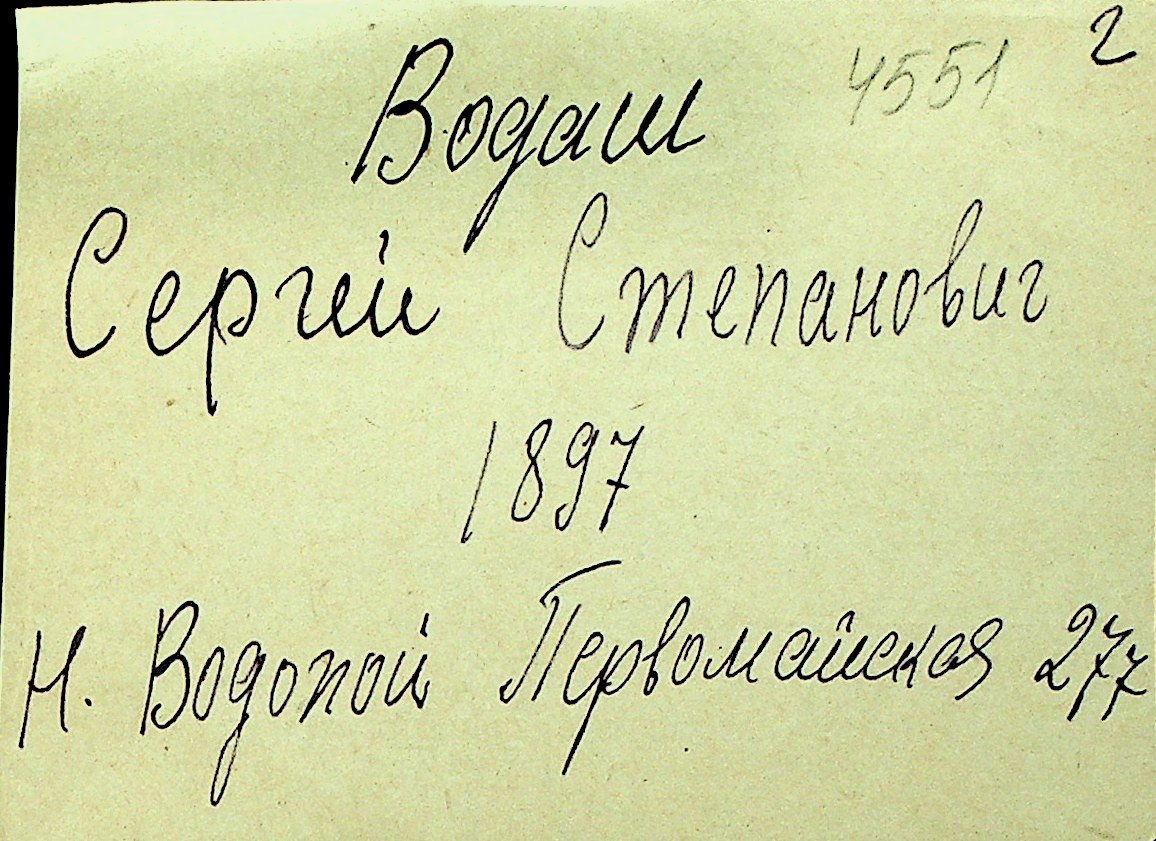 4551 2
Водаш
Сергей Степанович
1897
Н. Водопой Первомайская 277